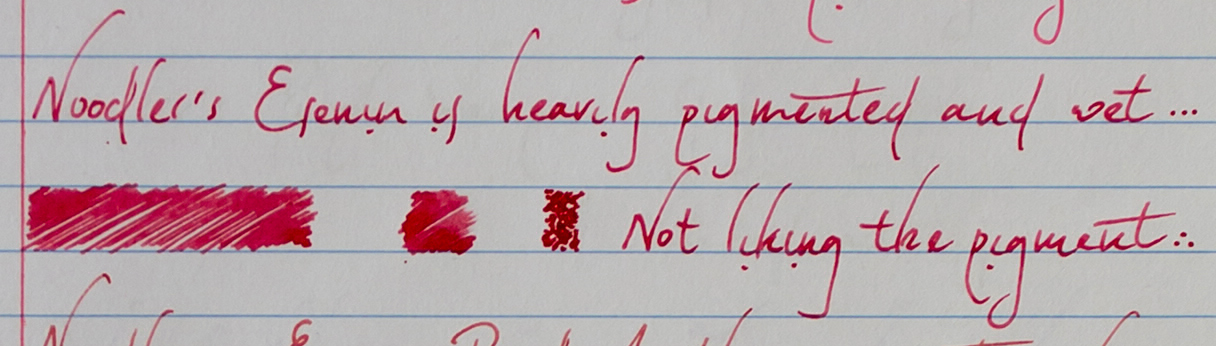 Noodler's is heavily pigmented and wet ...
Not liking the pigment...